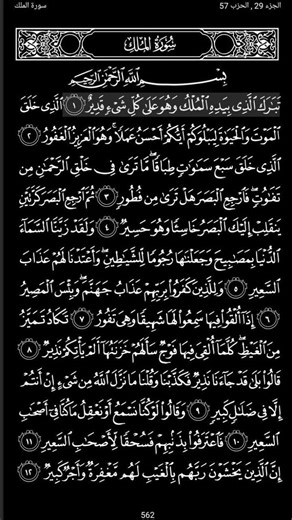 الجزء 29 , الحزب 57
سورة الملك
سُورَةُ المُلْكِ
بِسْمِ ٱللَّهِ ٱلرَّحْمَٰنِ ٱلرَّحِيمِ
تَبَٰرَكَ ٱلَّذِى بِيَدِهِ ٱلْمُلْكُ وَهُوَ عَلَىٰ كُلِّ شَىْءٍ قَدِيرٌ ١ ٱلَّذِى خَلَقَ
ٱلْمَوْتَ وَٱلْحَيَوٰةَ لِيَبْلُوَكُمْ أَيُّكُمْ أَحْسَنُ عَمَلًا وَهُوَ ٱلْعَزِيزُ ٱلْغَفُورُ ٢
ٱلَّذِى خَلَقَ سَبْعَ سَمَٰوَٰتٍ طِبَاقًا مَّا تَرَىٰ فِى خَلْقِ ٱلرَّحْمَٰنِ مِن
تَفَٰوُتٍ فَٱرْجِعِ ٱلْبَصَرَ هَلْ تَرَىٰ مِن فُطُورٍ ٣ ثُمَّ ٱرْجِعِ ٱلْبَصَرَ كَرَّتَيْنِ
يَنقَلِبْ إِلَيْكَ ٱلْبَصَرُ خَاسِئًا وَهُوَ حَسِيرٌ ٤ وَلَقَدْ زَيَّنَّا ٱلسَّمَآءَ
ٱلدُّنْيَا بِمَصَٰبِيحَ وَجَعَلْنَٰهَا رُجُومًا لِّلشَّيَٰطِينِ وَأَعْتَدْنَا لَهُمْ عَذَابَ
ٱلسَّعِيرِ ٥ وَلِلَّذِينَ كَفَرُوا۟ بِرَبِّهِمْ عَذَابُ جَهَنَّمَ وَبِئْسَ ٱلْمَصِيرُ
٦ إِذَآ أُلْقُوا۟ فِيهَا سَمِعُوا۟ لَهَا شَهِيقًا وَهِىَ تَفُورُ ٧ تَكَادُ تَمَيَّزُ
مِنَ ٱلْغَيْظِ كُلَّمَآ أُلْقِىَ فِيهَا فَوْجٌ سَأَلَهُمْ خَزَنَتُهَآ أَلَمْ يَأْتِكُمْ نَذِيرٌ ٨
قَالُوا۟ بَلَىٰ قَدْ جَآءَنَا نَذِيرٌ فَكَذَّبْنَا وَقُلْنَا مَا نَزَّلَ ٱللَّهُ مِن شَىْءٍ إِنْ أَنتُمْ
إِلَّا فِى ضَلَٰلٍ كَبِيرٍ ٩ وَقَالُوا۟ لَوْ كُنَّا نَسْمَعُ أَوْ نَعْقِلُ مَا كُنَّا فِىٓ أَصْحَٰبِ
ٱلسَّعِيرِ ١٠ فَٱعْتَرَفُوا۟ بِذَنۢبِهِمْ فَسُحْقًا لِّأَصْحَٰبِ ٱلسَّعِيرِ ١١
إِنَّ ٱلَّذِينَ يَخْشَوْنَ رَبَّهُم بِٱلْغَيْبِ لَهُم مَّغْفِرَةٌ وَأَجْرٌ كَبِيرٌ ١٢
562